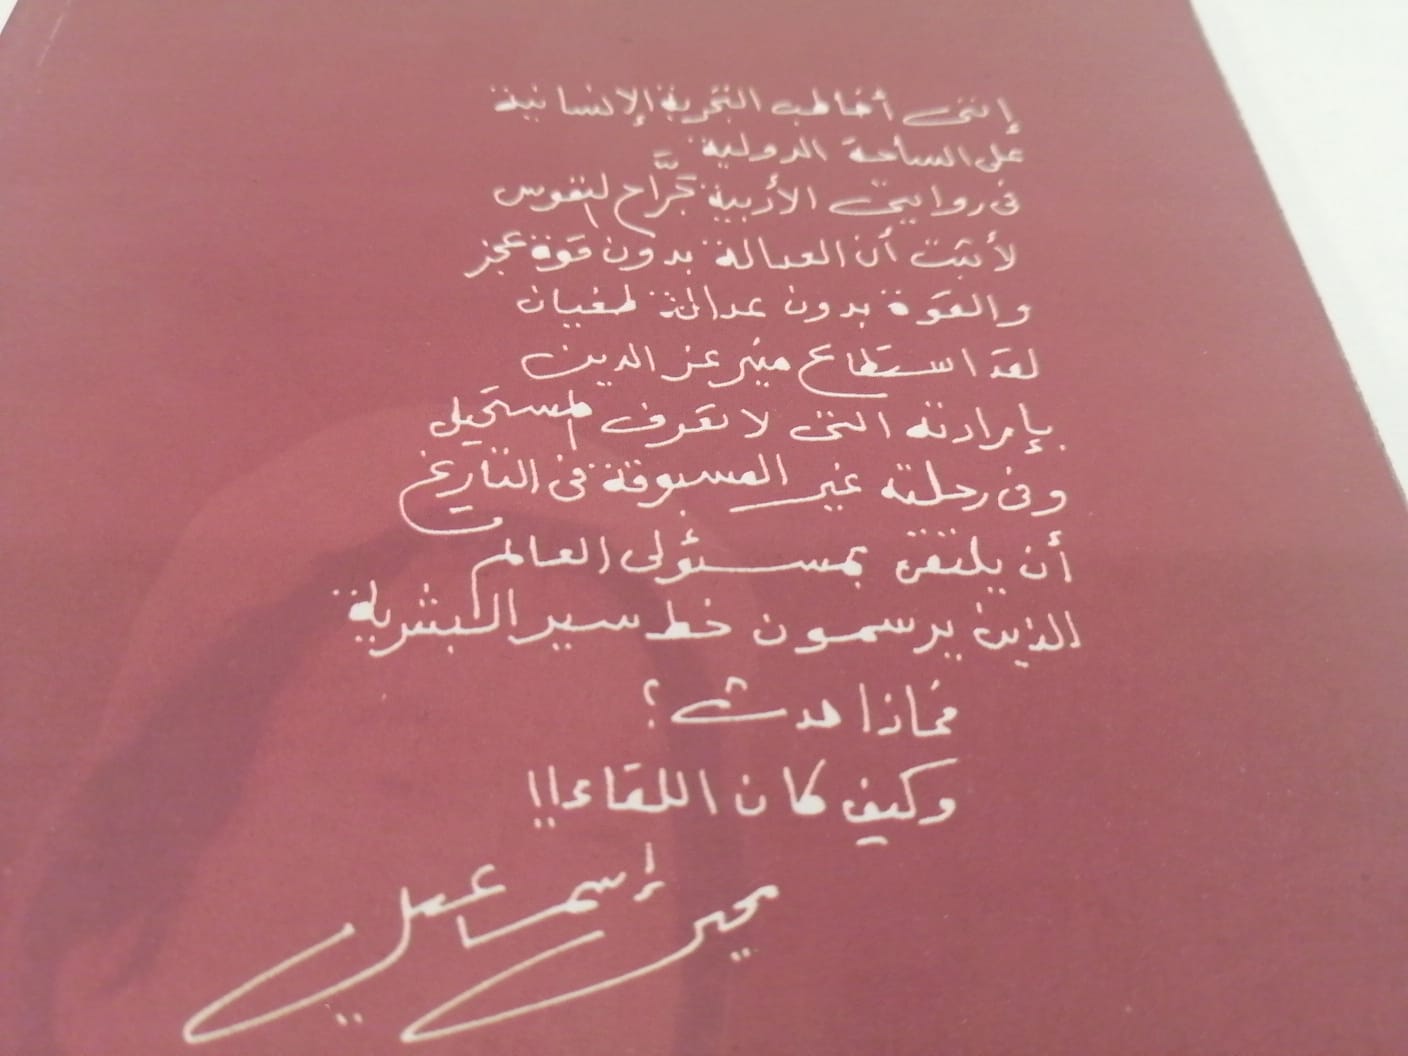 إننى أخاطب التجربة الإنسانية
على الساحة الدولية
فى روايتى الأدبية جَرَّاح النفوس
لأثبت أن العدالة بدون قوة عجز
والقوة بدون عدالة طغيان
لقد استطاع منير عز الدين
بإرادته التى لا تعرف المستحيل
وفى رحلته غير المسبوقة فى التاريخ
أن يلتقى بمسئولى العالم
الذين يرسمون خط سير البشرية
فماذا حدث؟
وكيف كان اللقاء!!
يحيى إسماعيل